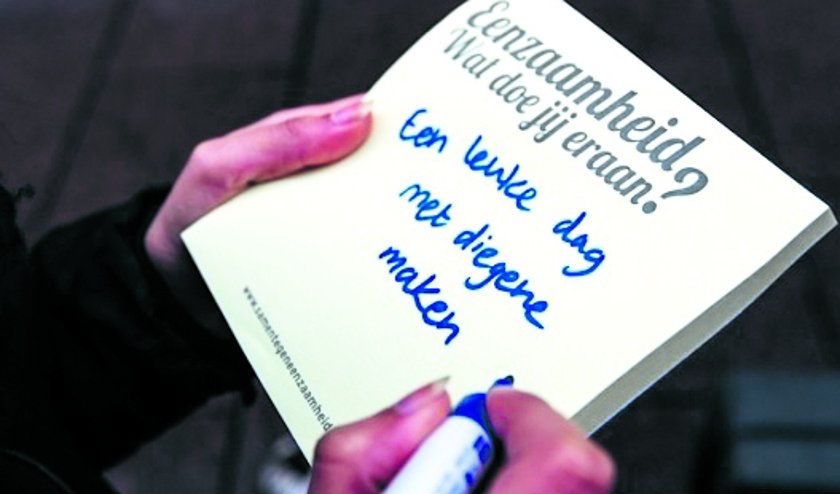 Eenzaamheid?
Wat doe jij eraan?
Een leuke dag
met diegene
maken
www.samentegeneenzaamheid